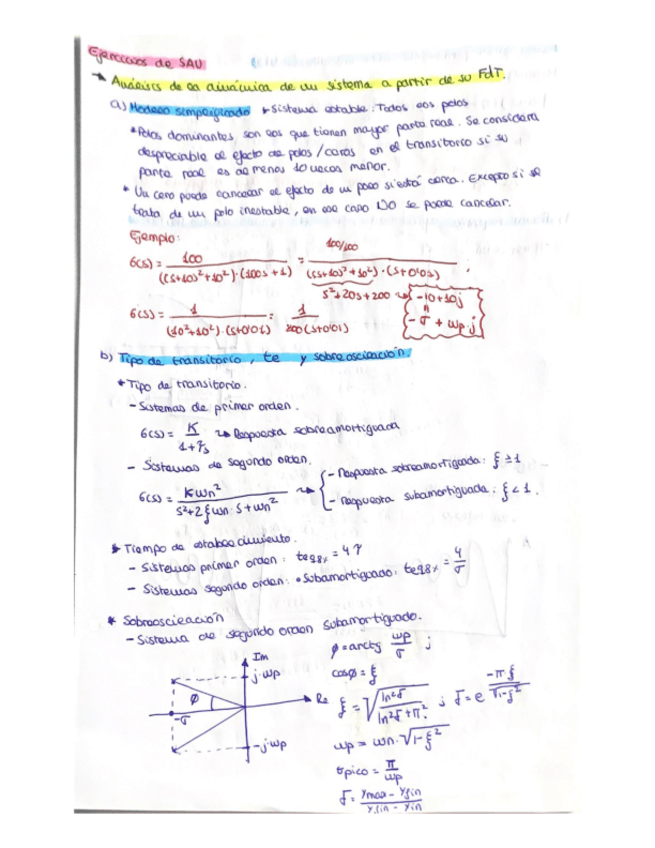 Ejercicios de SAU
→ Análisis de la dinámica de un sistema a partir de su FdT.
a) Modelo simplificado → Sistema estable: Todos los polos
* Polos dominantes son los que tienen mayor parte real. Se considera
despreciable el efecto de polos/ceros en el transitorio si su
parte real es al menos 10 veces menor.
* Un cero puede cancelar el efecto de un polo si está cerca. Excepto si se
trata de un polo inestable, en ese caso NO se puede cancelar.
Ejemplo:
G(s) = 100 / ((s+10)²+10²)·(100s+1) = 100/100 / ((s+10)²+10²)·(s+0'01) ;
s²+20s+200 → -10+10j
G(s) = 1 / (10²+10²)·(s+0'01) = 1 / 200(s+0'01)
= -σ + ωp·j
b) Tipo de transitorio, te y sobreoscilación.
* Tipo de transitorio.
- Sistemas de primer orden.
G(s) = K / 1+τs → Respuesta sobreamortiguada
- Sistemas de segundo orden.
G(s) = Kωn² / s²+2ξωn·s+ωn² → - Respuesta sobreamortiguada: ξ ≥ 1
- Respuesta subamortiguada: ξ < 1.
* Tiempo de establecimiento.
- Sistemas primer orden: te98% = 4τ
- Sistemas segundo orden: • Subamortiguado: te98% = 4/σ
* Sobreoscilación
- Sistema de segundo orden subamortiguado.
Im
j·ωp
Re
φ
-σ
-j·ωp
φ = arctg ωp/σ ;
cosφ = ξ
ξ = √(ln²δ / ln²δ+π²) ; δ = e^(-π·ξ/√(1-ξ²))
ωp = ωn·√(1-ξ²)
tpico = π/ωp
δ = ymax - yfin / yfin - yin